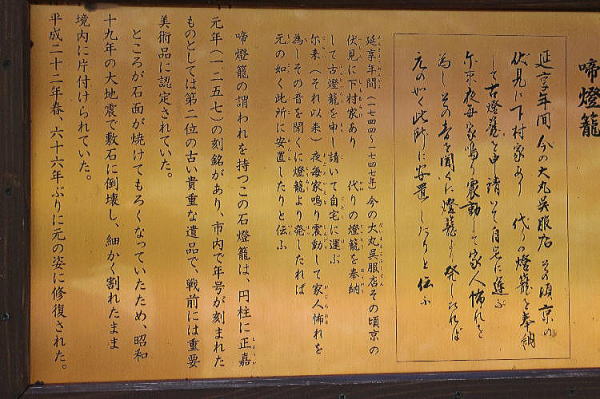 啼燈籠
延享年间 今の大丸呉服店 その頃京の
伏見に下村家あり 代りの燈籠を奉納
して古燈籠を申請いて自宅に運ぶ
尓来夜毎家鳴り震動して家人怖れを
為しその音を聞くに燈籠より発したれば
元の如く此所に安置したりと伝ふ
延享年間(一七四四~一七四七年)今の大丸呉服店その頃京の
伏見に下村家あり 代りの燈籠を奉納
して古燈籠を申し請いて自宅に運ぶ
尓来(それ以来)夜毎家鳴り震動して家人怖れを
為しその音を聞くに燈籠より発したれば
元の如く此所に安置したりと伝ふ
啼燈籠の謂われを持つこの石燈籠は、円柱に正嘉
元年(一二五七)の刻銘があり、市内で年号が刻まれた
ものとしては第二位の古い貴重な遺品で、戦前には重要
美術品に認定されていた。
ところが石面が焼けてもろくなっていたため、昭和
十九年の大地震で敷石に倒壊し、細かく割れたまま
境内に片付けられていた。
平成二十二年春、六十六年ぶりに元の姿に修復された。